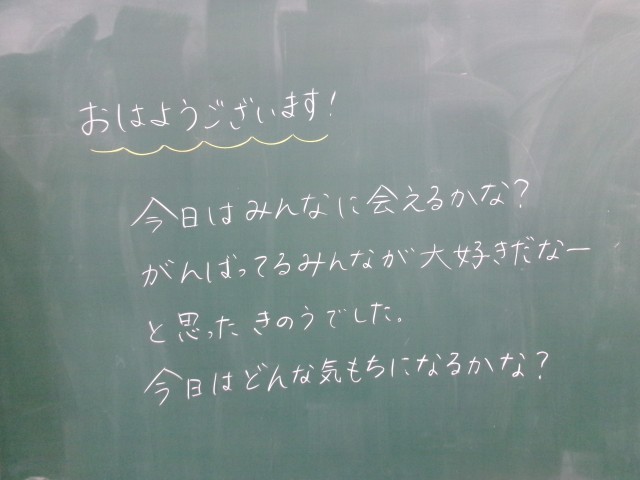 おはようございます！
今日はみんなに会えるかな？
がんばってるみんなが大好きだなー
と思ったきのうでした。
今日はどんな気もちになるかな？